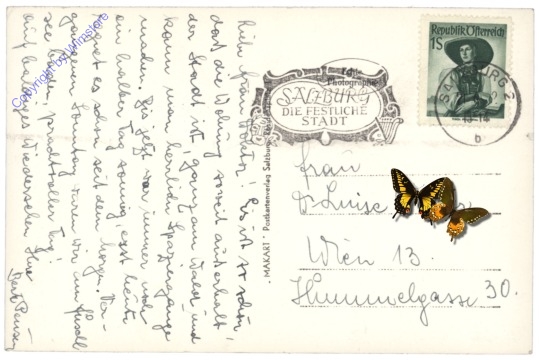 Liebe Frau Doktor! Es ist so schön,
dass die Wohnung so weit außerhalb
der Stadt ist, ganz am Wald und
kann man herrliche Spaziergänge
machen. Bis jetzt war immer noch
ein halber Tag sonnig, erst heute
regnet es schon seit dem Morgen. Ver-
gangenen Sonntag waren wir am Fuschl
see baden, prachtvoller Tag!
auf baldiges Wiedersehen Ihre
Copyright by Wimstore
Photographie
SALZBURG
DIE FESTLICHE
STADT
Republik Österreich
1S
SALZBURG 2
b
MAKART - Postkartenverlag Salzburg
Frau
Dr Luise
Wien 13.
Himmelgasse 30.